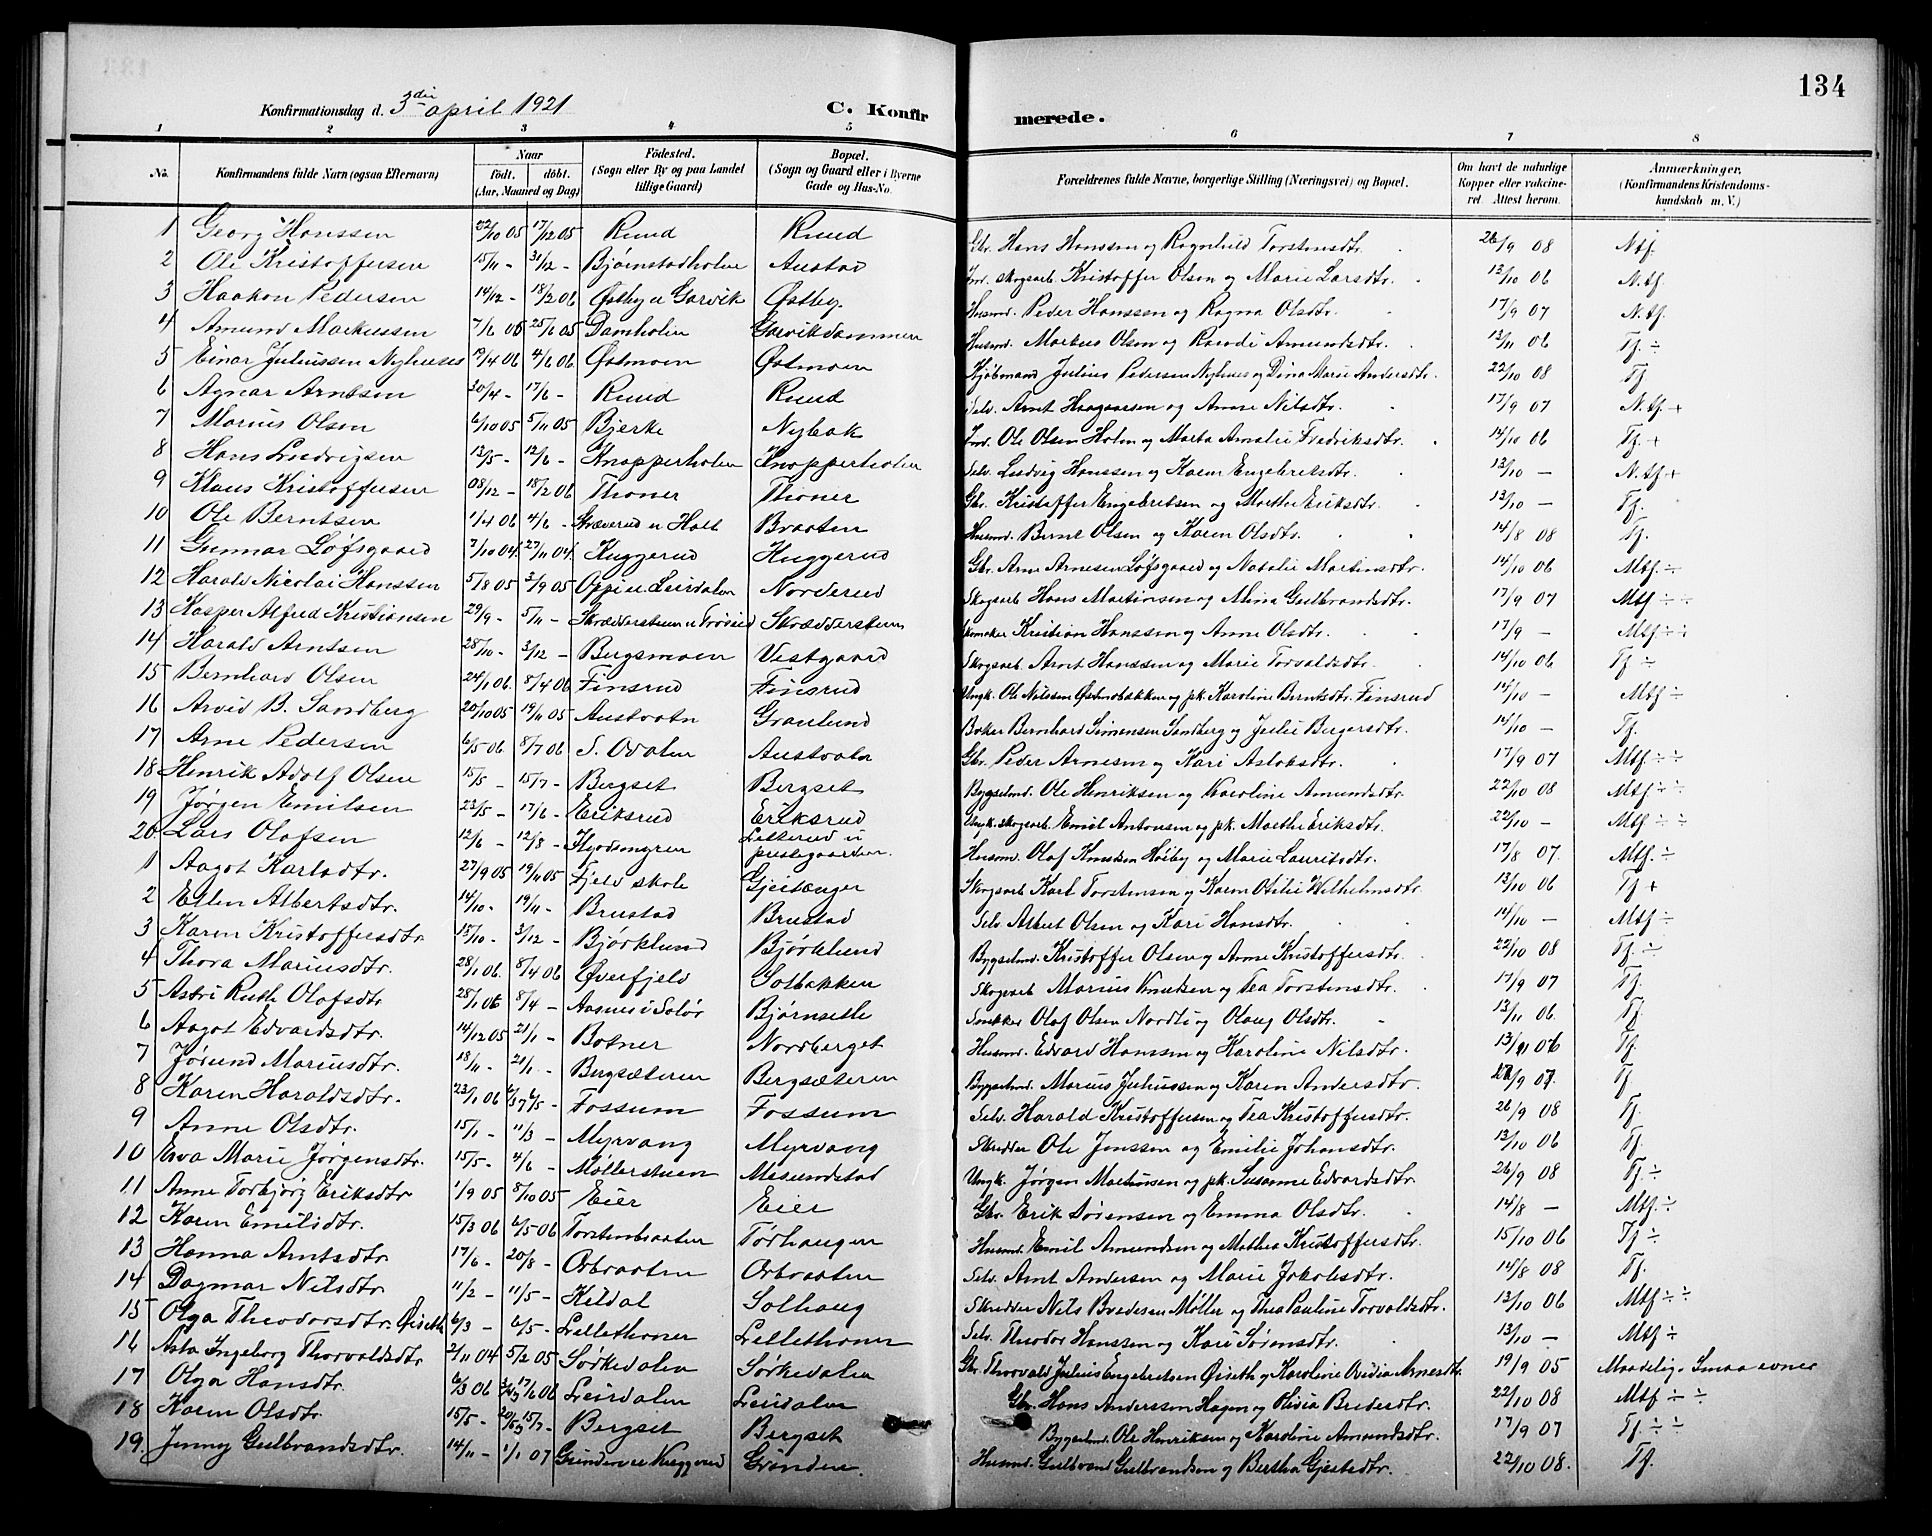 134
Konfirmationsdag d. 3die april 1921 C. Konfirmerede.
1 2 3 4 5 6 7 8
No. Konfirmandens fulde Navn (ogsaa Efternavn) Naar født. døbt. (Aar, Maaned og Dag) Fødested. (Sogn eller By og paa Landet tillige Gaard) Bopæl. (Sogn og Gaard eller i Byerne Gade og Hus-No. Forældrenes fulde Navne, borgerlige Stilling (Næringsvei) og Bopæl. Om havt de naturlige Kopper eller vakcineret. Attest herom. Anmærkninger. (Konfirmandens Kristendomskundskab m. V.)
1 Georg Hanssen 22/10 05 17/12 05 Ruud Ruud Gbr. Hans Hanssen og Ragnhild Torstensdtr. 26/9 08 Ntf.
2 Ole Kristoffersen 15/11 - 31/12 - Bjørnstadholen Austad Ind. skogsarb Kristoffer Olsen og Marie Larsdtr. 12/10 06 N.tf.
3 Haakon Pedersen 14/12 - 18/2 06 Østby u Garvik Østby Husmd. Peder Hanssen og Ragna Olsdtr. 17/9 07 N.tf.
4 Amund Markussen 7/6 05 25/6 05 Damholen Garvikdammen Husmd. Markus Olsen og Randi Amundsdtr. 13/11 06 Tf. ÷
5 Einar Juliussen Nyhuses 19/4 06 4/6 06 Østmoen Østmoen Kjøbmand Julius Pedersen Nyhuus og Dina Marie Andersdtr. 22/10 08 Tf.
6 Agnar Arntsen 20/4 - 17/6 - Ruud Ruud Selv. Arnt Haagaasen og Anne Nilsdtr. 17/9 07 N.tf. +
7 Marius Olsen 6/10 05 5/11 05 Bjerke Nybak Ind. Ole Olsen Holm og Marta Amalie Fredriksdtr. 14/10 06 Tf. +
8 Hans Ludvigsen 12/5 - 12/6 - Knapperholen Knapperholen Selv. Ludvig Hanssen og Karen Engebriktsdtr. 13/10 - N.tf +
9 Klaus Kristoffersen 08/12 - 18/2 06 Thoner Thoner Gbr. Kristoffer Engebretsen og Marthe Eriksdtr. 13/10 - Tf.
10 Ole Berntsen 1/4 06 4/6 - Skræverud u Holt Braaten Husmd. Bernt Olsen og Karen Olsdtr. 14/8 08 Tf.
11 Gunnar Løfsgaard 7/10 04 27/11 04 Kuggerud Kuggerud Gbr. Arne Arnesen Løfsgaard og Natalie Martinsdtr. 14/10 06 Mtf. ÷
12 Harald Nicolai Hanssen 5/8 05 3/9 05 Oppi u Leirdalen Norderud Skogsarb Hans Martinsen og Mina Gulbrandsdtr. 17/9 07 Mtf ÷ ÷
13 Kasper Alfred Kristiansen 29/9 - 5/11 - Skrædderstuen u Trøsud Skrædderstuen Skomaker Kristian Hanssen og Anne Olsdtr. 17/9 - Mtf ÷ ÷
14 Harald Arntsen 28/10 - 3/12 - Bergsmoen Vestgaard Skogsarb. Arnt Hanssen og Marie Torvaldsdtr. 14/10 06 Tf. ÷
15 Bernhard Olsen 24/1 06. 8/4 06 Finsrud Finsrud Ungk. Ole Nilssen Østmobakken og pk. Karoline Berntsdtr. Finsrud 14/10 - Mtf ÷
16 Arvid B. Sandberg 20/10 05 19/11 05 Austvatn Granlund Baker Bernhard Simensen Sandberg og Julie Bergersdtr. 14/10 - Tf.
17 Arne Pedersen 6/5 06 8/7 06 S. Odalen Austvatn Gbr. Peder Arnesen og Kari Aslaksdtr. 17/9 07 Mtf ÷ ÷
18 Henrik Adolf Olsen 15/5 - 15/7 - Bergset Bergset Bygselmd. Ole Henriksen og Karoline Amundsdtr. 22/10 08 Mtf ÷ ÷
19 Jørgen Emilsen 23/5 - 17/6 - Eriksrud Eriksrud Ungk. skogsarb. Emil Antonsen og pk. Marthe Eriksdtr. 22/10 - Mtf ÷ ÷
20 Lars Olafsen 12/6 - 12/8 - Hjodsmyren Letterud u prestegaarden. Husmd. Olaf Knutsen Høiby og Marie Lauritsdtr. 17/8 07. Mtf. ÷
1 Aagot Karlsdtr. 27/9 05 19/11 05 Fjeld skole Gjeitænger Skogsarb Karl Torstensen og Karen Otilie Wilhelmsdtr. 13/10 06 Tf +
2 Ellen Albertsdtr. 14/10 - 19/11 - Brustad Brustad Selv. Albert Olsen og Kari Hansdtr. 14/10 - Mtf ÷
3 Karen Kristoffersdtr. 15/10 - 3/12 - Bjørklund Bjørklund Bygselmd. Kristoffer Olsen og Anne Kristoffersdtr. 22/10 08 Tf. ÷
4 Thora Mariusdtr. 28/1 06. 8/4 06 Øverfjeld Solbakken Skogsarb Marius Knutsen og Tea Torstensdtr. 17/9 07 Tf.
5 Astri Ruth Olafsdtr 28/1 06 8/4 - Aasnes i Solør Bjørnsette Snekker Olaf Olsen Nordli og Olaug Olsdtr. 13/11 06. Tf.
6 Aagot Edvardsdtr. 14/12 05 21/1 - Botner Nordberget Husmd. Edvard Hanssen og Karoline Nilsdtr. 13/11 06 Tf
7 Jørund Mariusdtr. 18/11 - 21/1 - Bergsæteren Bergsæteren Bygselmd. Marius Juliussen og Karen Andersdtr. 27/9 07. Tf
8 Karen Haraldsdtr. 23/1 06 6/5 - Fossum Fossum Selv. Harald Kristoffersen og Tea Kristoffersdtr. 26/9 08 Tf.
9 Anne Olsdtr. 15/1 - 11/3 - Myrvang Myrvang Skrædder Ole Jonssen og Emilie Johansdtr. 13/10 06 Tf.
10 Eva Marie Jørgensdtr. 15/5 - 4/6 - Møllerstuen Mesundstad Ungk. Jørgen Mathusen og pk. Susanne Edvardsdtr. 26/9 08 Tf. ÷
11 Anne Torbjørg Eriksdtr 1/9 05 8/10 05 Eier Eier Gbr. Erik Sørensen og Emma Olsdtr. 14/8 - Mtf. ÷
12 Karen Emilsdtr. 15/3 06 6/5 06 Torstenbraaten Tørhaugen Husmd. Emil Amundsen og Mathea Kristoffersdtr. 15/10 06 Tf ÷
13 Hanna Arntsdtr 17/6 - 20/8 - Orbraaten Orbraaten Selv. Arnt Andersen og Marie Jakobsdtr. 14/8 08 Tf.
14 Dagmar Nilsdtr 11/2 - 11/5 - Kildal Solhaug Skrædder Nils Bredesen Møller og Thea Pauline Torvaldsdtr. 13/10 06 Mtf ÷ ÷
15 Olga Theodorsdtr. Øiseth 6/3 - 6/5 - Lillethoner Lillethoner Selv. Theodor Hanssen og Kari Sørensdtr. 13/10 - Mtf ÷
16 Asta Ingeborg Thorvaldsdtr 2/11 04 5/2 05 Sørkedalen Sørkedalen Gbr. Thorvald Julius Engebretsen Øiseth og Karoline Ovidia Arnesdtr. 19/9 05 Maadelig. Smaa evner
17 Olga Hansdtr. 6/3 06 17/6 06 Leirdalen Leirdalen Gbr. Hans Anderssen Hagen og Olivia Bredesdtr. 22/10 08 Mtf ÷ ÷
18 Karen Olsdtr. 15/5 - 15/7 - Bergset Bergset Bygselmd. Ole Henriksen og Karoline Amundsdtr. 17/9 07 Tf. ÷ ÷
19. Jenny Gulbrandsdtr. 14/11 - 1/1 07 Grinderen u Kuggerud Grinden. Husmd. Gulbrand Gulbrandsen og Bertha Gjestsdtr. 22/10 08. Tf.